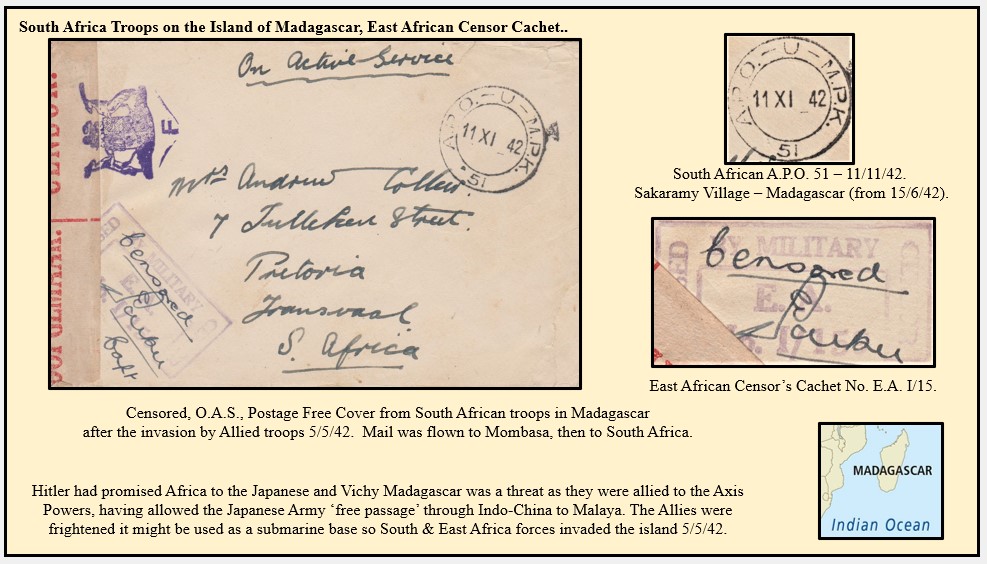 South Africa Troops on the Island of Madagascar, East African Censor Cachet..
On Active Service
A.P.O.–U–M.P.K.
11 XI 42
51
F
Mrs Andrew
7 Street.
Pretoria
Transvaal
S. Africa
BY MILITARY
Censored
Capt
A.P.O.–U–M.P.K.
11 XI 42
51
South African A.P.O. 51 – 11/11/42.
Sakaramy Village – Madagascar (from 15/6/42).
BY MILITARY
Censored
E.A.
I/15
East African Censor's Cachet No. E.A. I/15.
Censored, O.A.S., Postage Free Cover from South African troops in Madagascar
after the invasion by Allied troops 5/5/42. Mail was flown to Mombasa, then to South Africa.
MADAGASCAR
Indian Ocean
Hitler had promised Africa to the Japanese and Vichy Madagascar was a threat as they were allied to the Axis
Powers, having allowed the Japanese Army ‘free passage’ through Indo-China to Malaya. The Allies were
frightened it might be used as a submarine base so South & East Africa forces invaded the island 5/5/42.